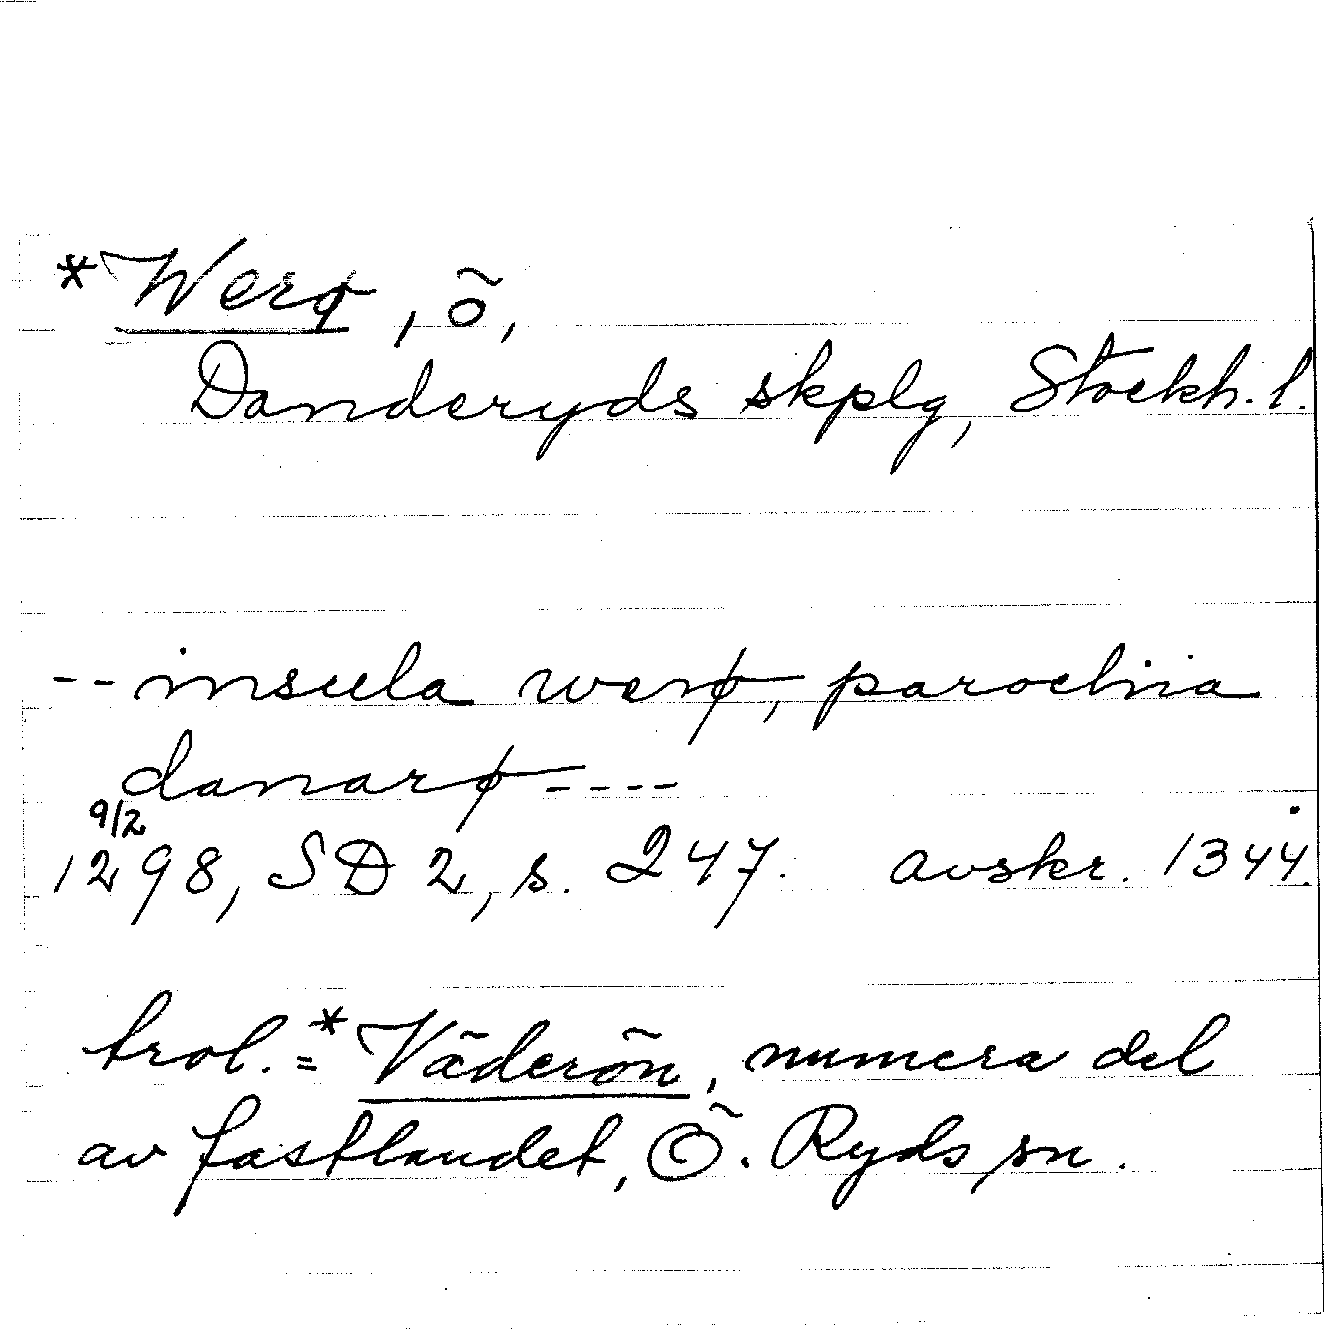 *Werø, ö,
Danderyds skplg, Stockh. l.
-- insula werø, parochia
danarø ----
9/2
1298, SD 2, s. 247. avskr. 1344.
trol. = *Väderön, numera del
av fastlandet, Ö. Ryds sn.